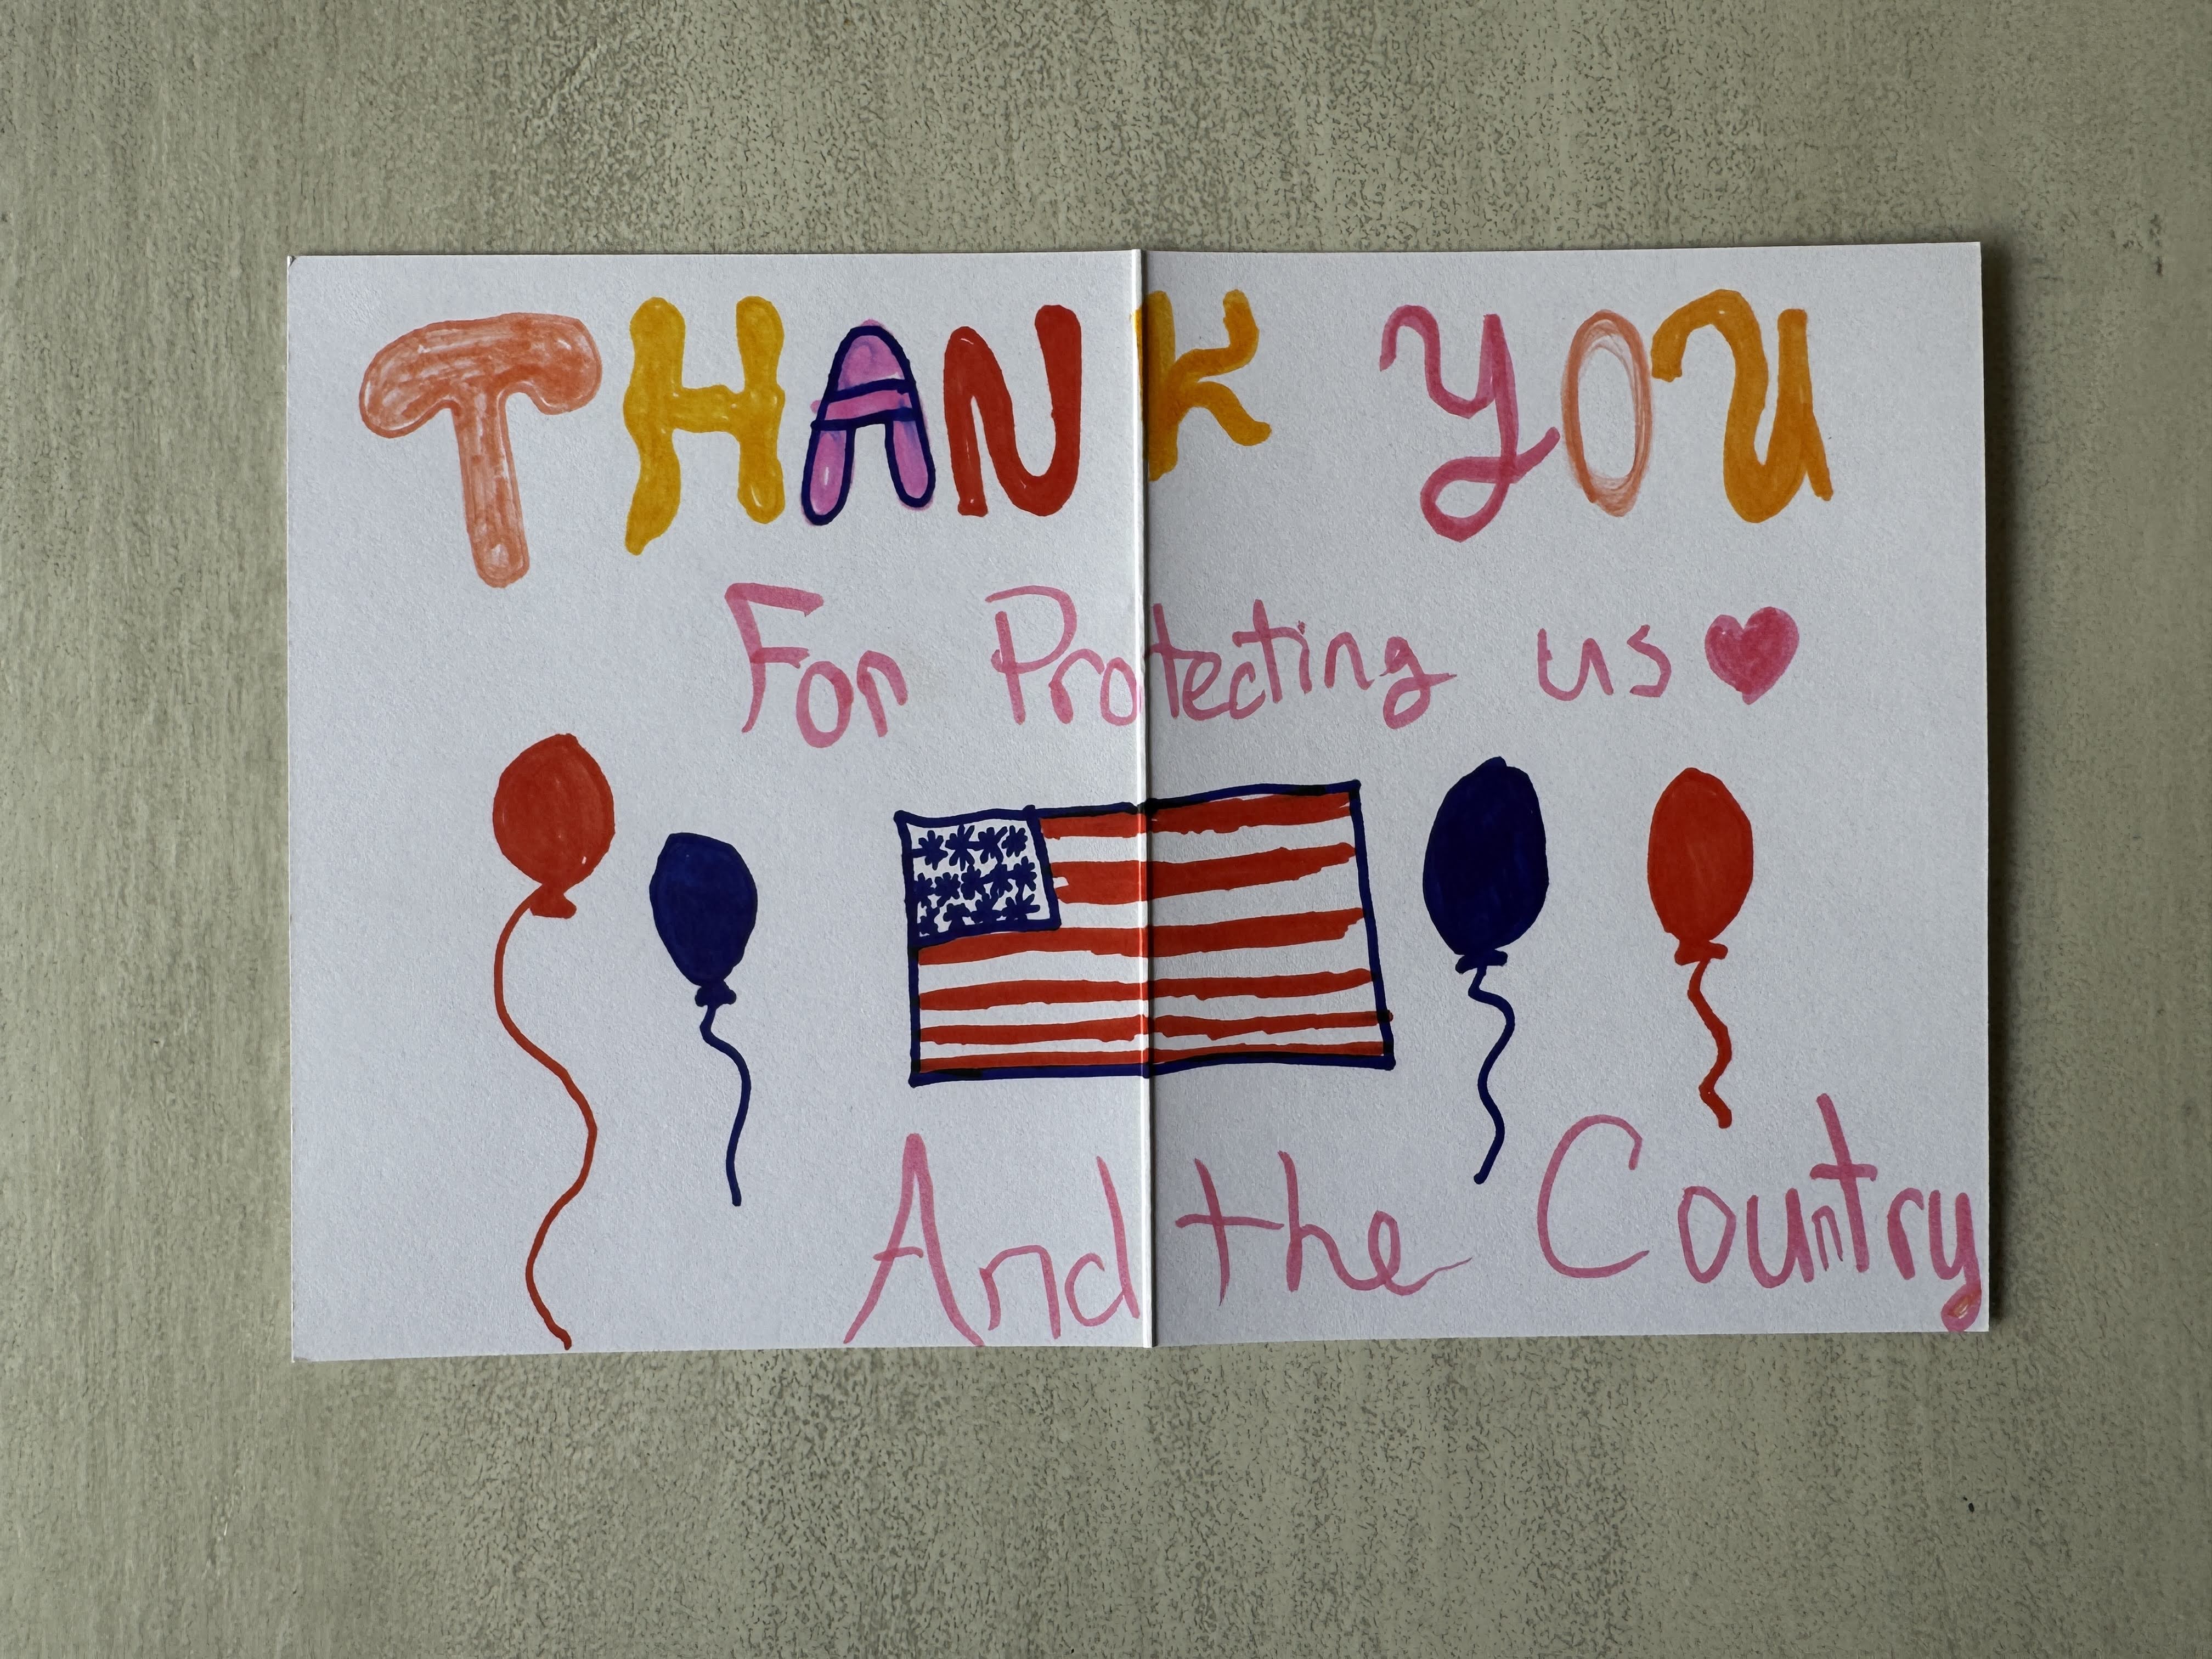 THANK YOU
For Protecting us
And the Country